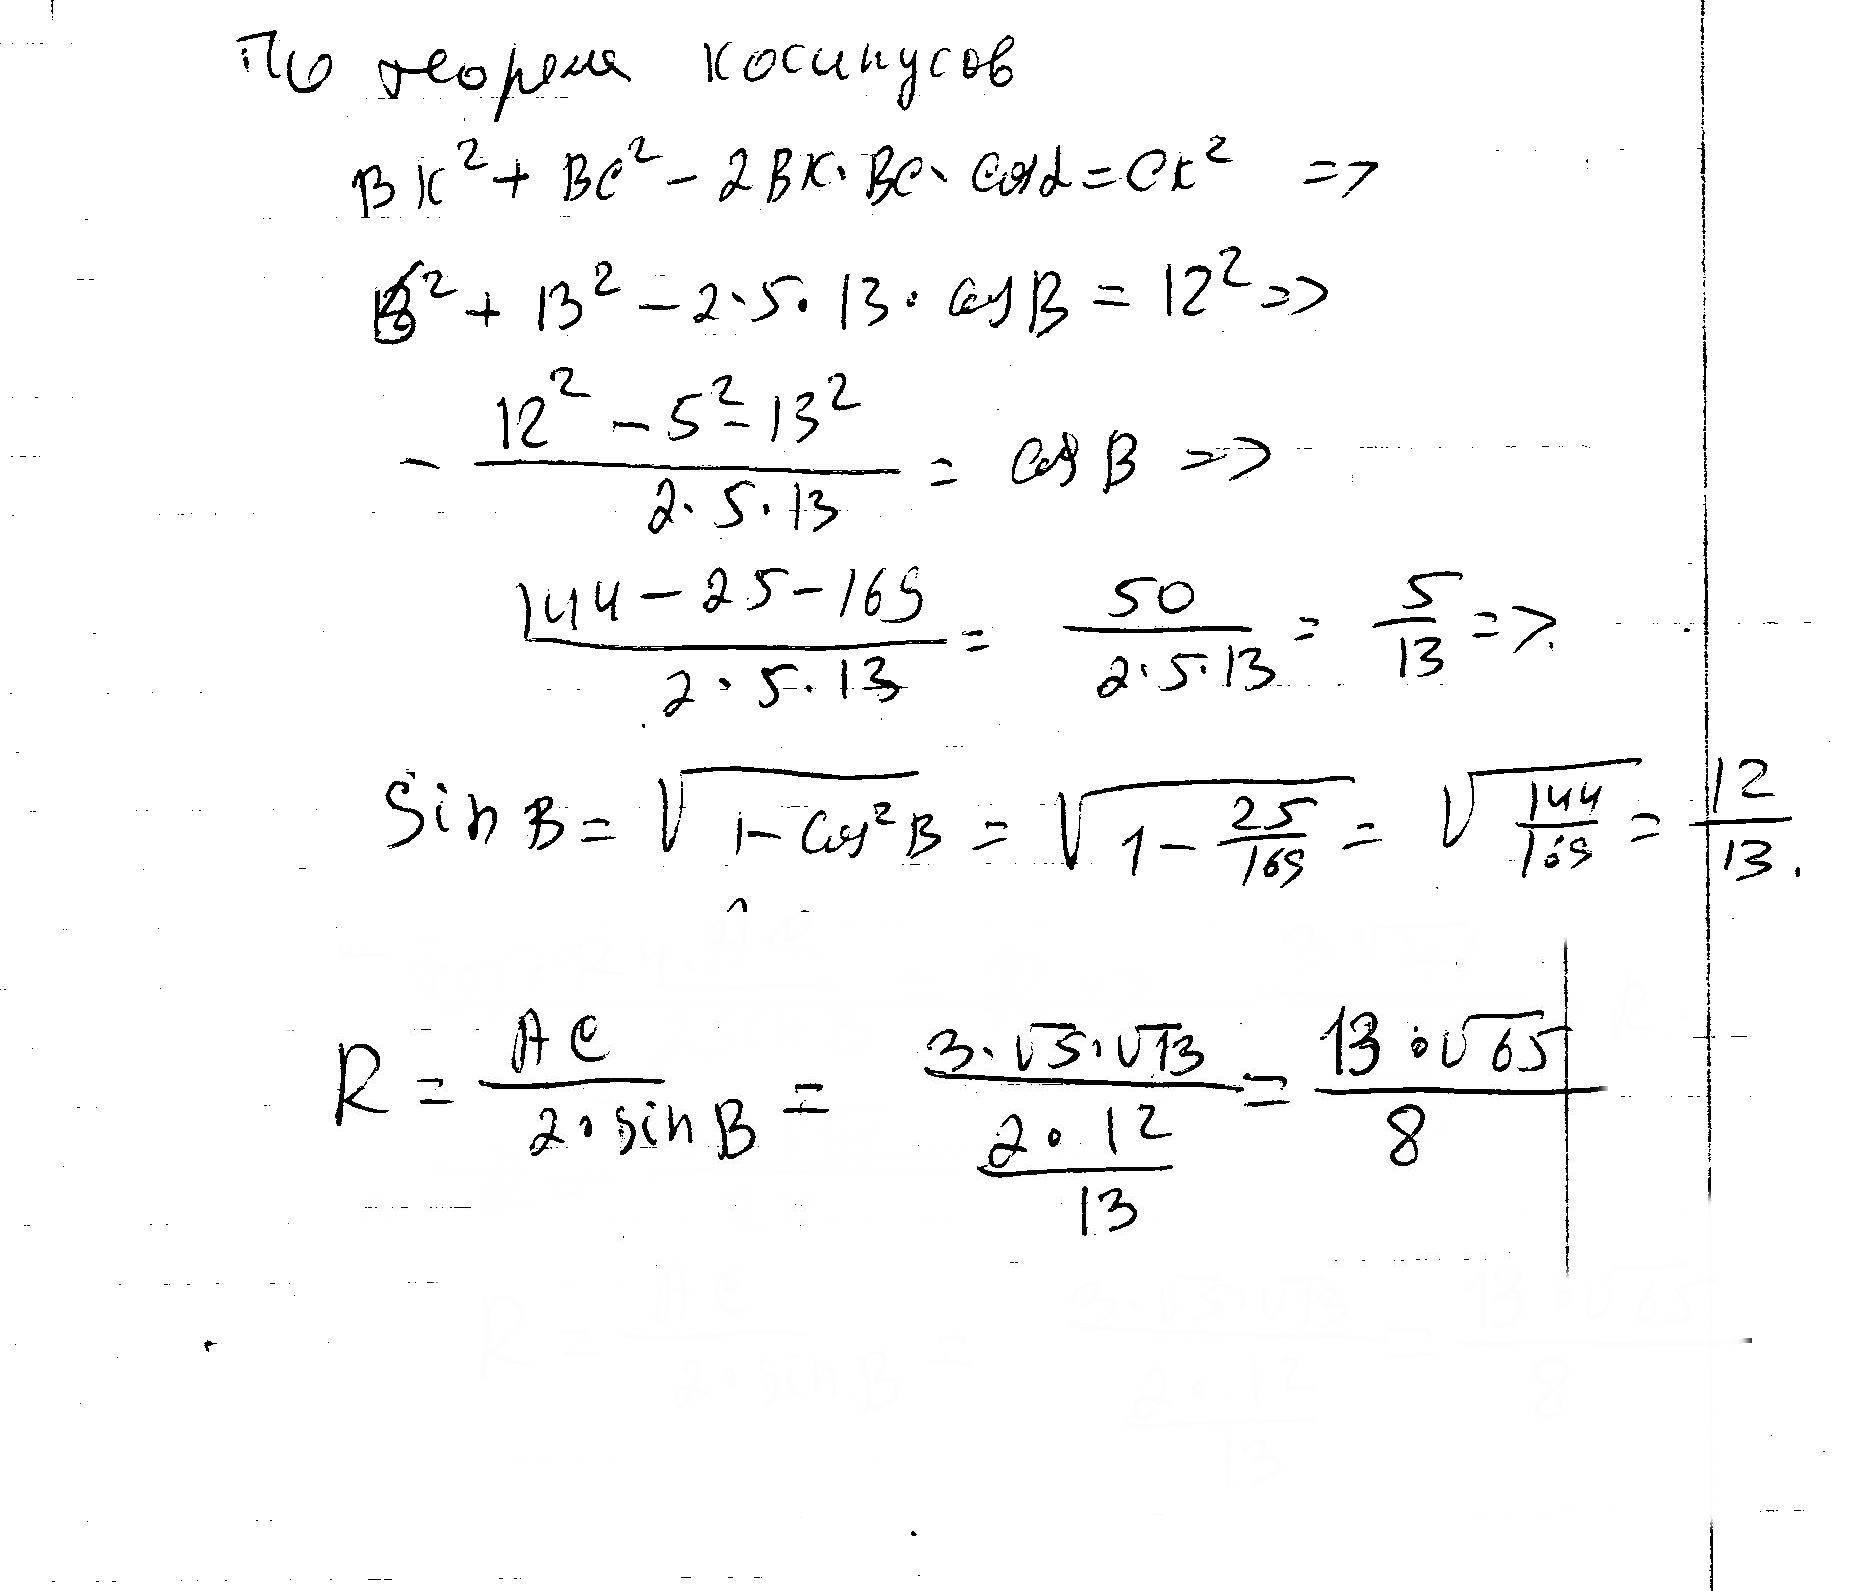 По теореме косинусов
BK² + BC² - 2BK · BC · cos α = CK² =>
5² + 13² - 2·5·13·cos B = 12² =>
- (12² - 5² - 13²)/(2·5·13) = cos B =>
(144 - 25 - 169)/(2·5·13) = 50/(2·5·13) = 5/13 =>.
Sin B = √(1 - cos² B) = √(1 - 25/169) = √(144/169) = 12/13.
R = AC/(2·sin B) = (3·√5·√13)/((2·12)/13) = (13·√65)/8